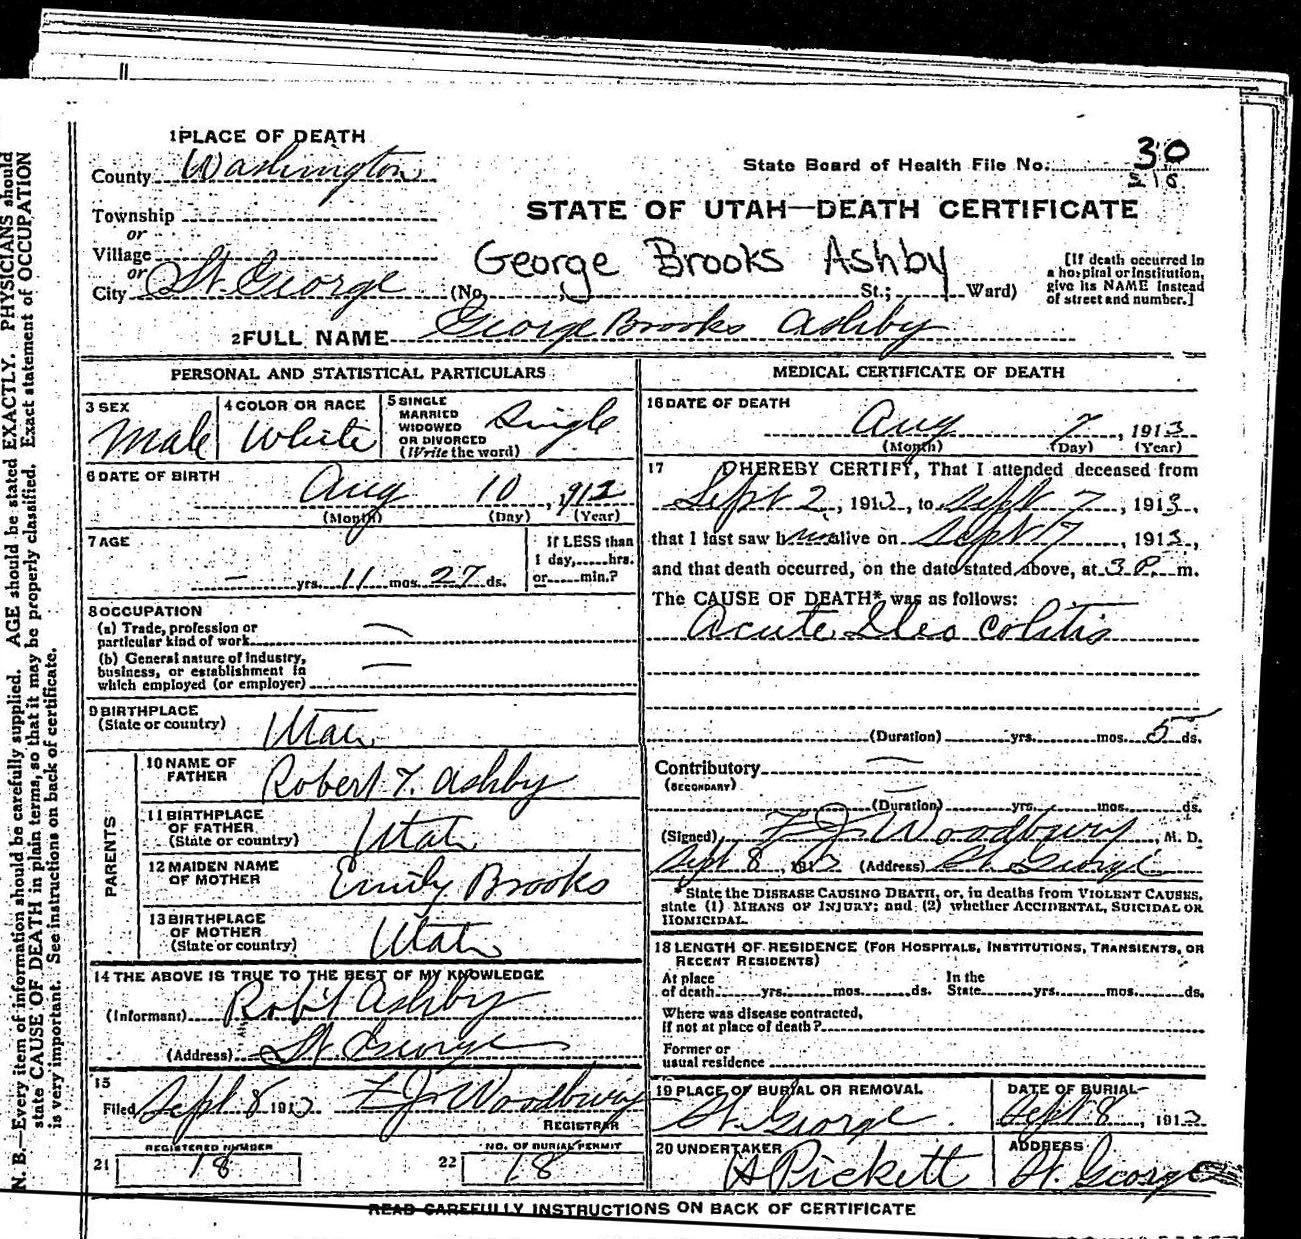 1 PLACE OF DEATH
County Washington
State Board of Health File No. 30
Township
or
STATE OF UTAH—DEATH CERTIFICATE
Village
or
City St. George
George Brooks Ashby
(No. St.; Ward)
[If death occurred in
a hospital or institution,
give its NAME instead
of street and number.]
2 FULL NAME George Brooks Ashby
PERSONAL AND STATISTICAL PARTICULARS
3 SEX
Male
4 COLOR OR RACE
White
5 SINGLE
MARRIED
WIDOWED
OR DIVORCED
(Write the word)
Single
6 DATE OF BIRTH
Aug 10, 1912
(Month) (Day) (Year)
7 AGE
— yrs. 11 mos. 27 ds.
If LESS than
1 day,.....hrs.
or.....min.?
8 OCCUPATION
(a) Trade, profession or
particular kind of work —
(b) General nature of industry,
business, or establishment in
which employed (or employer) —
9 BIRTHPLACE
(State or country) Utah
PARENTS
10 NAME OF
FATHER Robert T. Ashby
11 BIRTHPLACE
OF FATHER
(State or country) Utah
12 MAIDEN NAME
OF MOTHER Emily Brooks
13 BIRTHPLACE
OF MOTHER
(State or country) Utah
14 THE ABOVE IS TRUE TO THE BEST OF MY KNOWLEDGE
(Informant) Rob't Ashby
(Address) St. George
15
Filed Sept 8 1913 F J Woodbury
REGISTRAR
REGISTERED NUMBER
21 18
NO. OF BURIAL PERMIT
22 18
MEDICAL CERTIFICATE OF DEATH
16 DATE OF DEATH
Aug 7, 1913
(Month) (Day) (Year)
17 I HEREBY CERTIFY, That I attended deceased from
Sept 2, 1913, to Sept 7, 1913,
that I last saw him alive on Sept 7, 1913,
and that death occurred, on the date stated above, at 3 P. m.
The CAUSE OF DEATH* was as follows:
Acute Ileo Colitis
(Duration) yrs. mos. 5 ds.
Contributory —
(SECONDARY)
(Duration) yrs. mos. ds.
(Signed) F J Woodbury, M. D.
Sept 8, 1913 (Address) St. George
* State the DISEASE CAUSING DEATH, or, in deaths from VIOLENT CAUSES,
state (1) MEANS OF INJURY; and (2) whether ACCIDENTAL, SUICIDAL OR
HOMICIDAL.
18 LENGTH OF RESIDENCE (FOR HOSPITALS, INSTITUTIONS, TRANSIENTS, OR
RECENT RESIDENTS)
At place
of death yrs. mos. ds.
In the
State yrs. mos. ds.
Where was disease contracted,
if not at place of death?
Former or
usual residence
19 PLACE OF BURIAL OR REMOVAL
St. George
DATE OF BURIAL
Sept 8, 1913
20 UNDERTAKER
Pickett
ADDRESS
St. George
READ CAREFULLY INSTRUCTIONS ON BACK OF CERTIFICATE
N. B.—Every item of information should be carefully supplied. AGE should be stated EXACTLY. PHYSICIANS should
state CAUSE OF DEATH in plain terms, so that it may be properly classified. Exact statement of OCCUPATION
is very important. See instructions on back of certificate.